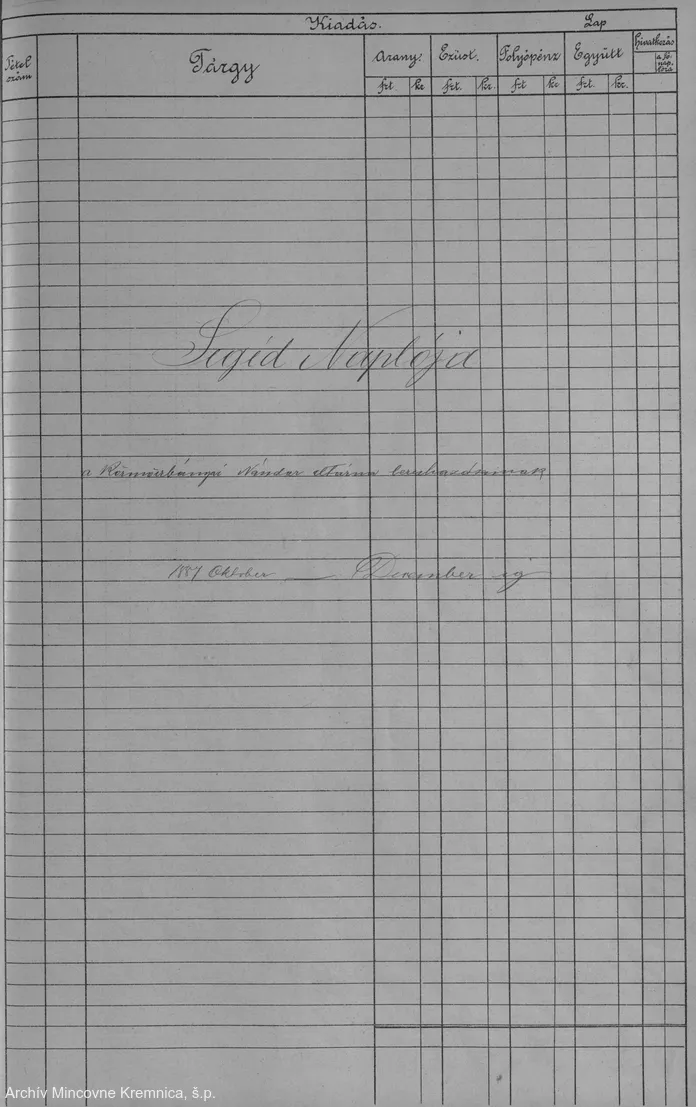 Kiadás. Lap
Tétel szám
Tárgy
Arany. Ezüst. Folyópénz Együtt
hivatkozás
a fő nap lóra
frt. kr frt. kr. frt kr frt. kr.
Segéd Naplója
a Körmöcbányai Nándor altárna
1887 Oktober — December ig
Archív Mincovne Kremnica, š.p.